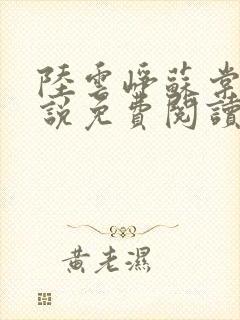 陸雲崢蘇棠
說免費閱讀
黃老濕